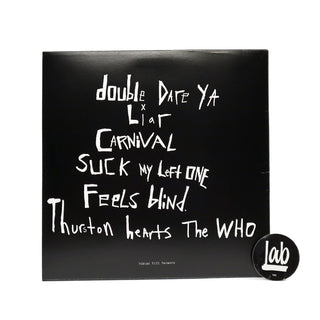 double Dare YA
x
Liar
CARNIVAL
SUCK MY Left ONE
Feels blind.
Thurston hearts The WHO
lab